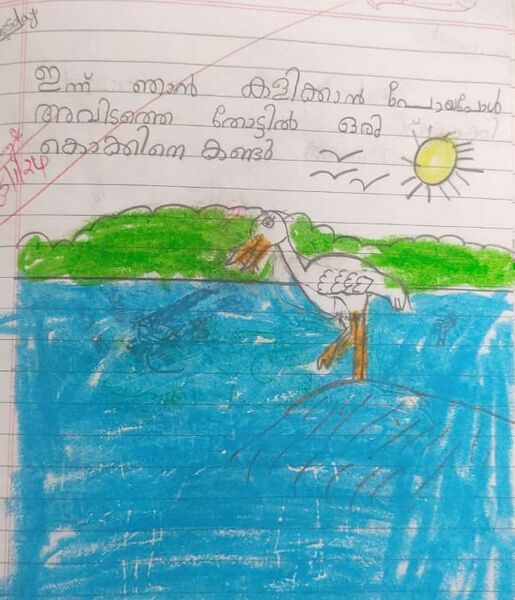 ഇന്ന് ഞാൻ കളിക്കാൻ പോയപ്പോൾ
അവിടത്തെ തോട്ടിൽ ഒരു
കൊക്കിനെ കണ്ടു